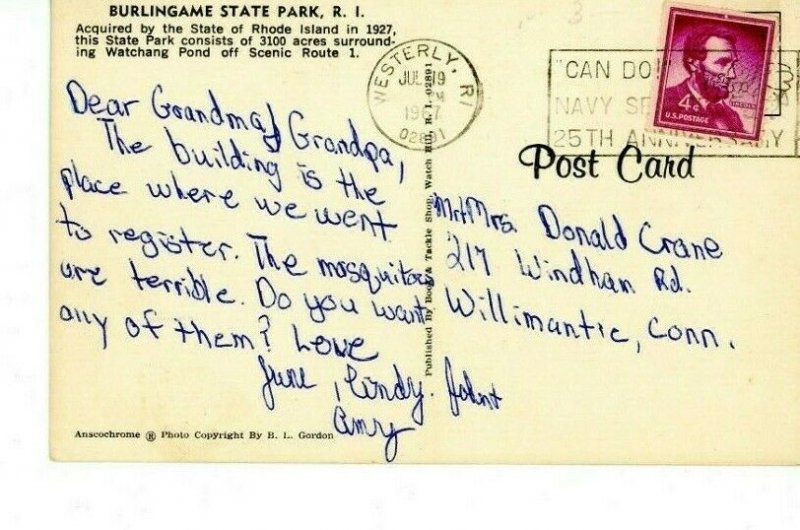 BURLINGAME STATE PARK, R. I.
Acquired by the State of Rhode Island in 1927,
this State Park consists of 3100 acres surround-
ing Watchang Pond off Scenic Route 1.
Dear Grandma & Grandpa,
The building is the
place where we went
to register. The mosquitoes
are terrible. Do you want
any of them? Love
June, Cindy. John +
Amy
Anscochrome ® Photo Copyright By B. L. Gordon
Published By Book & Tackle Shop, Watch Hill, R. I. 02891
WESTERLY, R.I.
JUL 19
PM
1967
02891
"CAN DO"
NAVY
25TH ANNIVERSARY
4¢
LINCOLN
U.S. POSTAGE
Post Card
Mr + Mrs. Donald Crane
217 Windham Rd.
Willimantic, Conn.